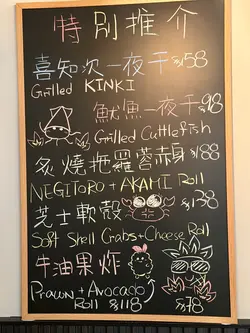 特別推介
喜知次一夜干 $158
Grilled KINKI
魷魚一夜干 $98
Grilled Cuttlefish
炙燒拖羅蓉赤身 $188
NEGITORO + AKAMI Roll
芝士軟殼 $138
Soft Shell Crabs+Cheese Roll
牛油果炸
Prawn + Avocado
Roll $118
$78